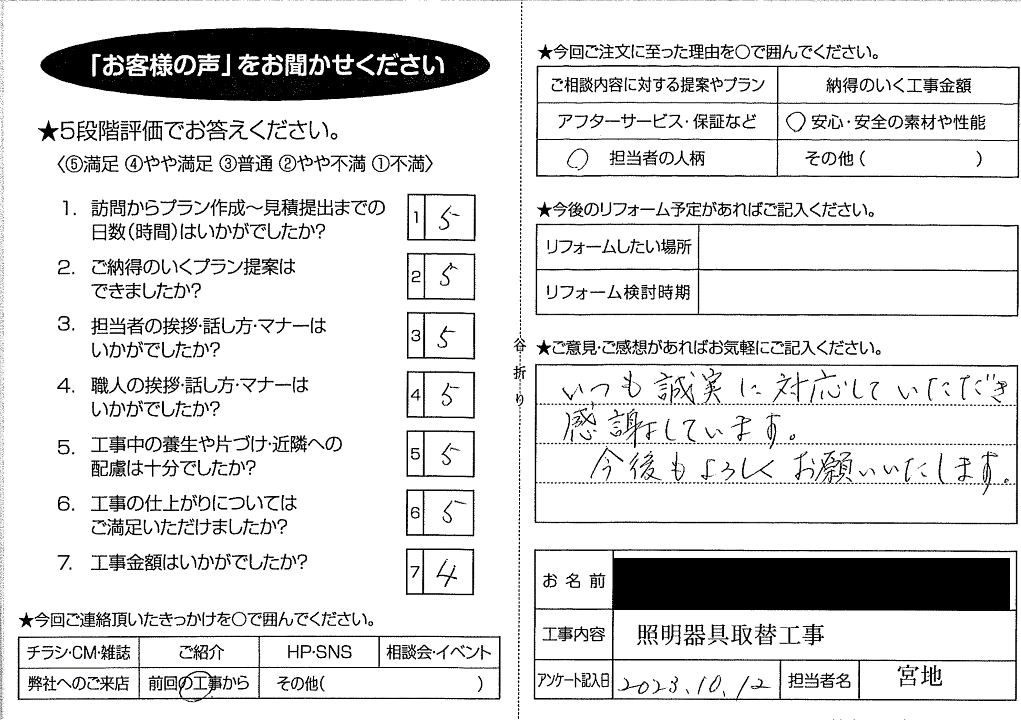 「お客様の声」をお聞かせください
★5段階評価でお答えください。
〈⑤満足 ④やや満足 ③普通 ②やや不満 ①不満〉
1. 訪問からプラン作成～見積提出までの
日数(時間)はいかがでしたか?
1 5
2. ご納得のいくプラン提案は
できましたか?
2 5
3. 担当者の挨拶・話し方・マナーは
いかがでしたか?
3 5
4. 職人の挨拶・話し方・マナーは
いかがでしたか?
4 5
5. 工事中の養生や片づけ・近隣への
配慮は十分でしたか?
5 5
6. 工事の仕上がりについては
ご満足いただけましたか?
6 5
7. 工事金額はいかがでしたか?
7 4
★今回ご連絡頂いたきっかけを○で囲んでください。
チラシ・CM・雑誌 ご紹介 HP・SNS 相談会・イベント
弊社へのご来店 前回の工事から その他( )
谷折り
★今回ご注文に至った理由を○で囲んでください。
ご相談内容に対する提案やプラン 納得のいく工事金額
アフターサービス・保証など 安心・安全の素材や性能
担当者の人柄 その他( )
★今後のリフォーム予定があればご記入ください。
リフォームしたい場所
リフォーム検討時期
★ご意見・ご感想があればお気軽にご記入ください。
いつも誠実に対応していただき
感謝しています。
今後もよろしくお願いいたします。
お名前
工事内容 照明器具取替工事
アンケート記入日 2023.10.12 担当者名 宮地